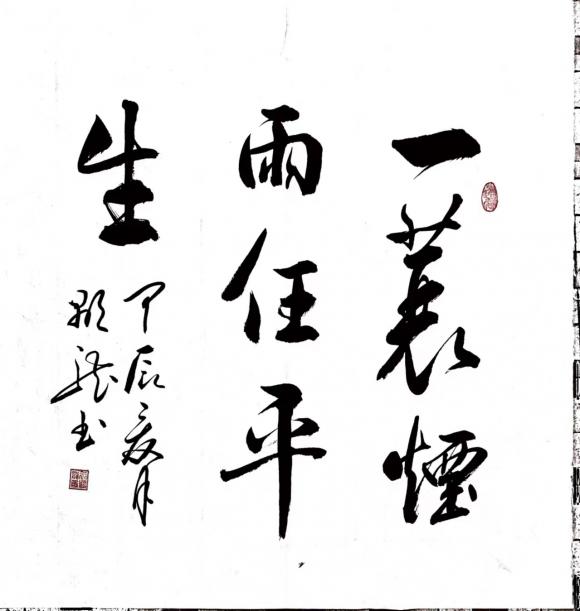 一蓑煙
雨任平
生
甲辰夏月
书